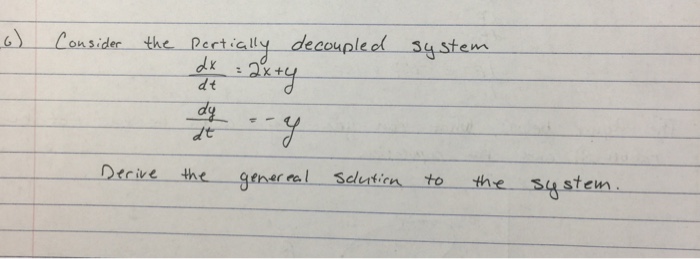 6) Consider the partially decoupled system
dx/dt = 2x+y
dy/dt = -y
Derive the genereal solution to the system.